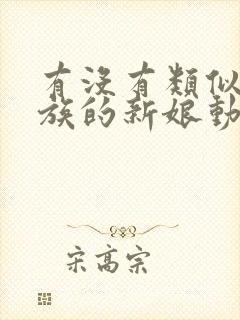 有沒有類似
族的新娘動
宋高宗